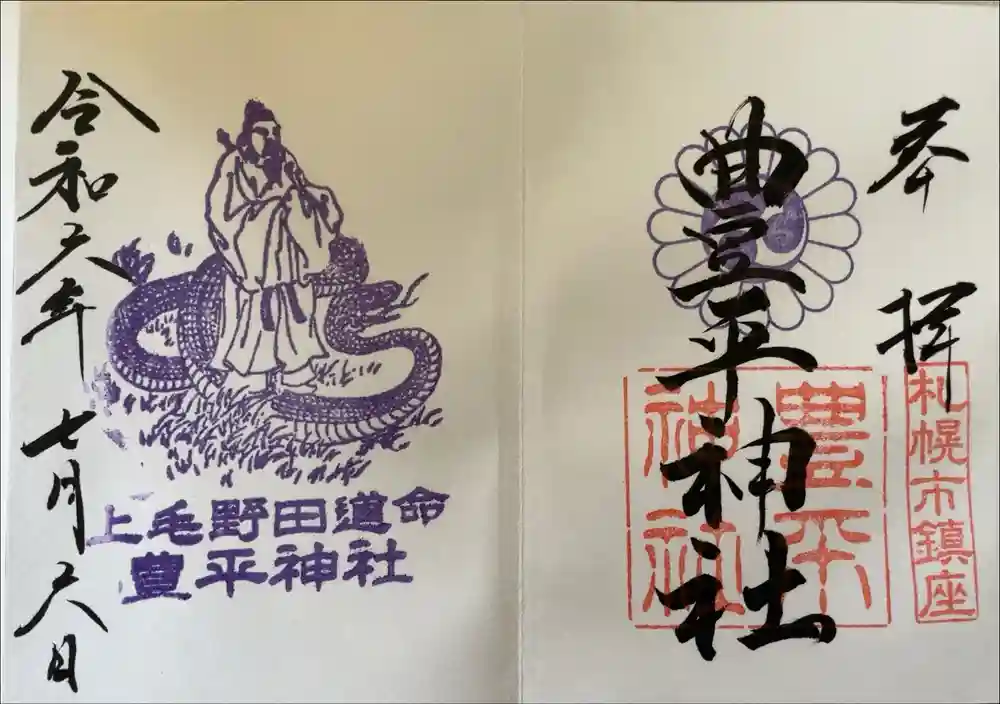 奉拝
札幌市鎮座
豊平神社
豊平
神社
上毛野田道命
豊平神社
令和六年七月六日